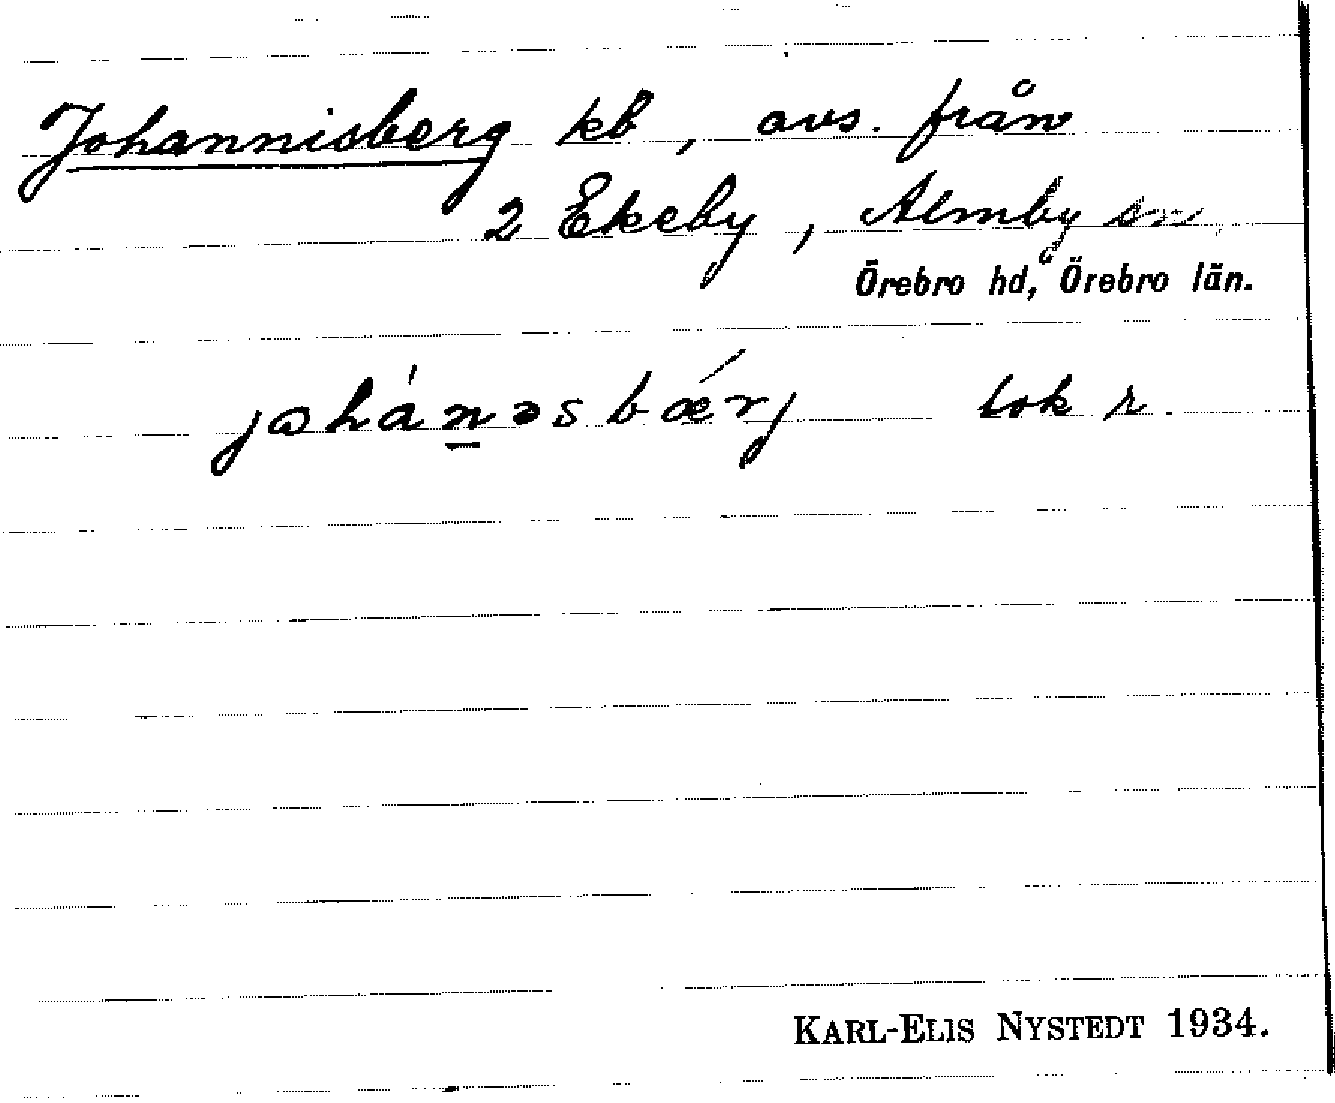 Johannisberg kb, avs. från
2 Ekeby, Almby sn,
Örebro hd, Örebro län.
johánəsbǽrj tok r.
KARL-ELIS NYSTEDT 1934.